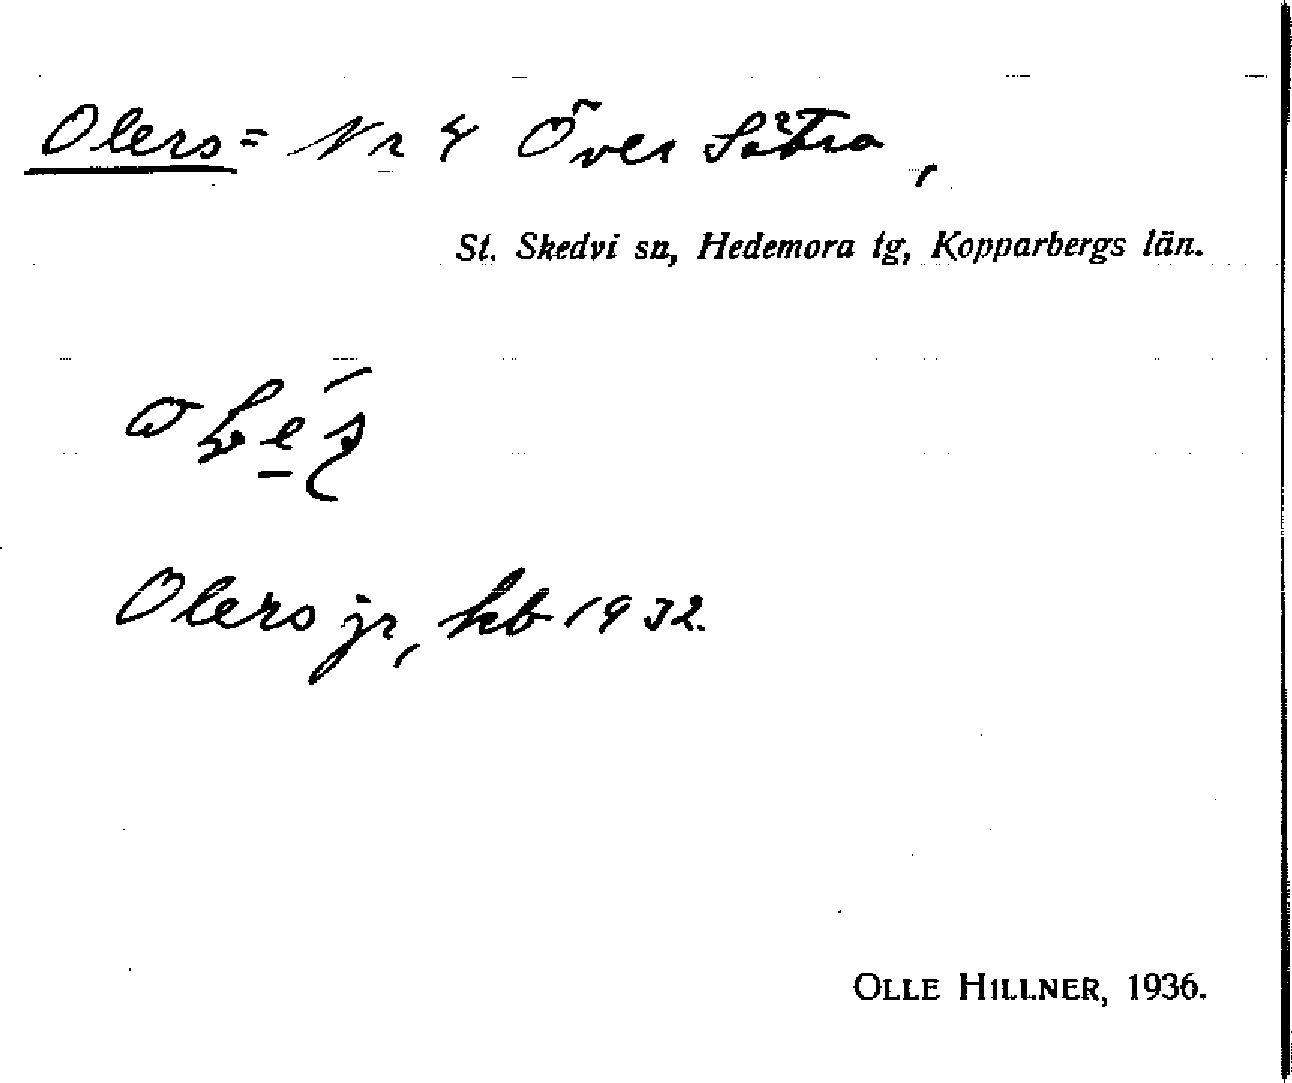 Olers = Nr 8 Över Sätra,
St. Skedvi sn, Hedemora tg, Kopparbergs län.
Olers jr, kb 1932.
OLLE HILLNER, 1936.